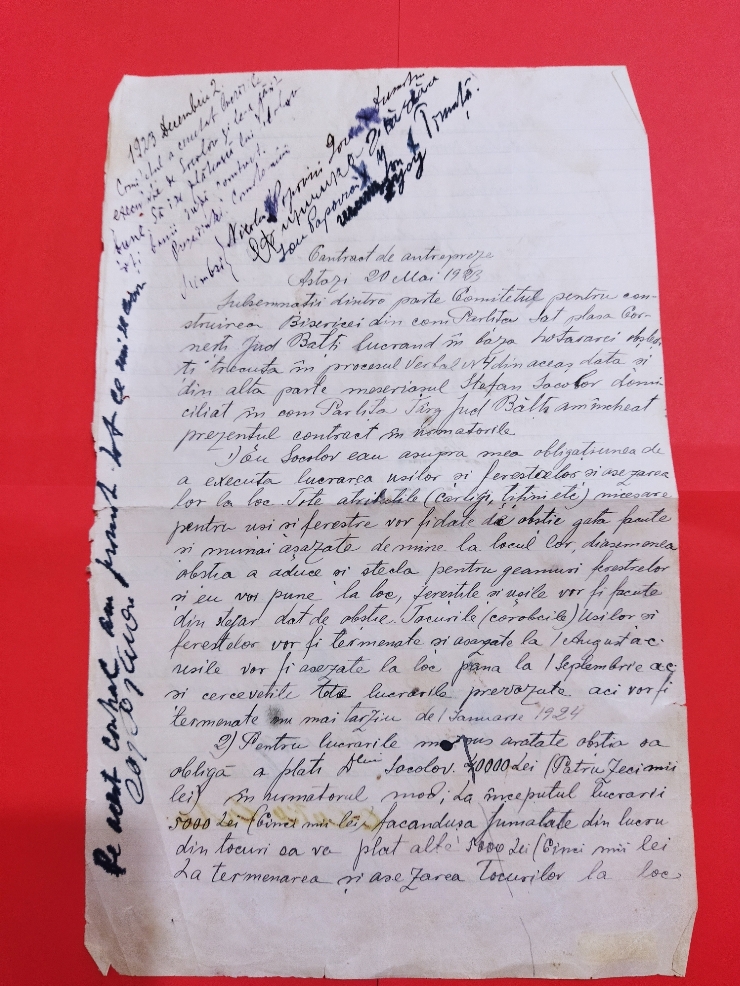 1923 Decembrie 2
Comitetul a cercetat lucrările
executate de Socolov și le-a găsit
bune, să i se plătească lui Socolov
toți banii după contract.
Președintele Comitetului
Membrii
Nicolai Popovici
Ion Popovici
Contract de antrepreze
Astazi 20 Mai 1923
Subsemnatii dintro parte Comitetul pentru con-
struirea Bisericei din com Parlita Sat plasa Cor-
nesti Jud Balti lucrand în baza hotararei obstes-
ti trecuta în procesul Verbal N 4 din aceas data si
din alta parte meseriasul Stefan Socolov domi
ciliat in com Parlita Târg Jud Bălti am incheat
prezentul contract în urmatorile
1) Eu Socolov eau asupra mea obligatiunea de
a executa lucrarea usilor si ferestrelor si asezarea
lor la loc. Tote atributile (cârligi, titini etc) nicesare
pentru usi si ferestre vor fi date de obstie gata facute
si numai asazate de mine la locul lor, diasemenea
obstia a aduce si stecla pentru geamuri ferestrelor
si eu voi pune la loc, ferestile si usile vor fi facute
din stejar dat de obstie. Tocurile (corobcile) Usilor si
ferestelor vor fi termenate si asezate la 1 August a c.
usile vor fi asezate la loc pâna la 1 Septembrie ac.
si cercevelile tote lucrarile prevazute aci vor fi
termenate nu mai tarziu de 1 Ianuarie 1924
2) Pentru lucrarile mai sus aratate obstia sa
obligă a plati Dlui Socolov 40000 Lei (Patru Zeci mii
lei) în urmatorul mod; La începutul lucrarii
5000 Lei (Cinci mii lei) facandusa Jumatate din lucru
din tocuri sa va plat alte 5000 Lei (Cinci mii lei
La termenarea și asezarea Tocurilor la loc
Pe acest contract am primit tot ce mi se cuvine